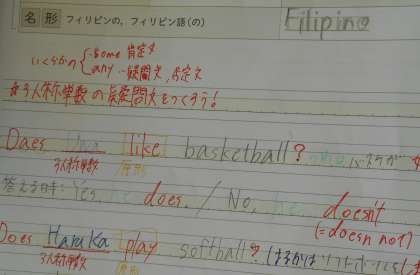 名 形 フィリピンの，フィリピン語(の) Filipino
いくらかの some 肯定文
any…疑問文,否定文
☆3人称単数の疑問文をつくろう!
Does like basketball?
3人称単数 原形
答える時: Yes, he does. / No, he doesn't
(=does not)
Does Haruka play softball?
3人称単数 原形